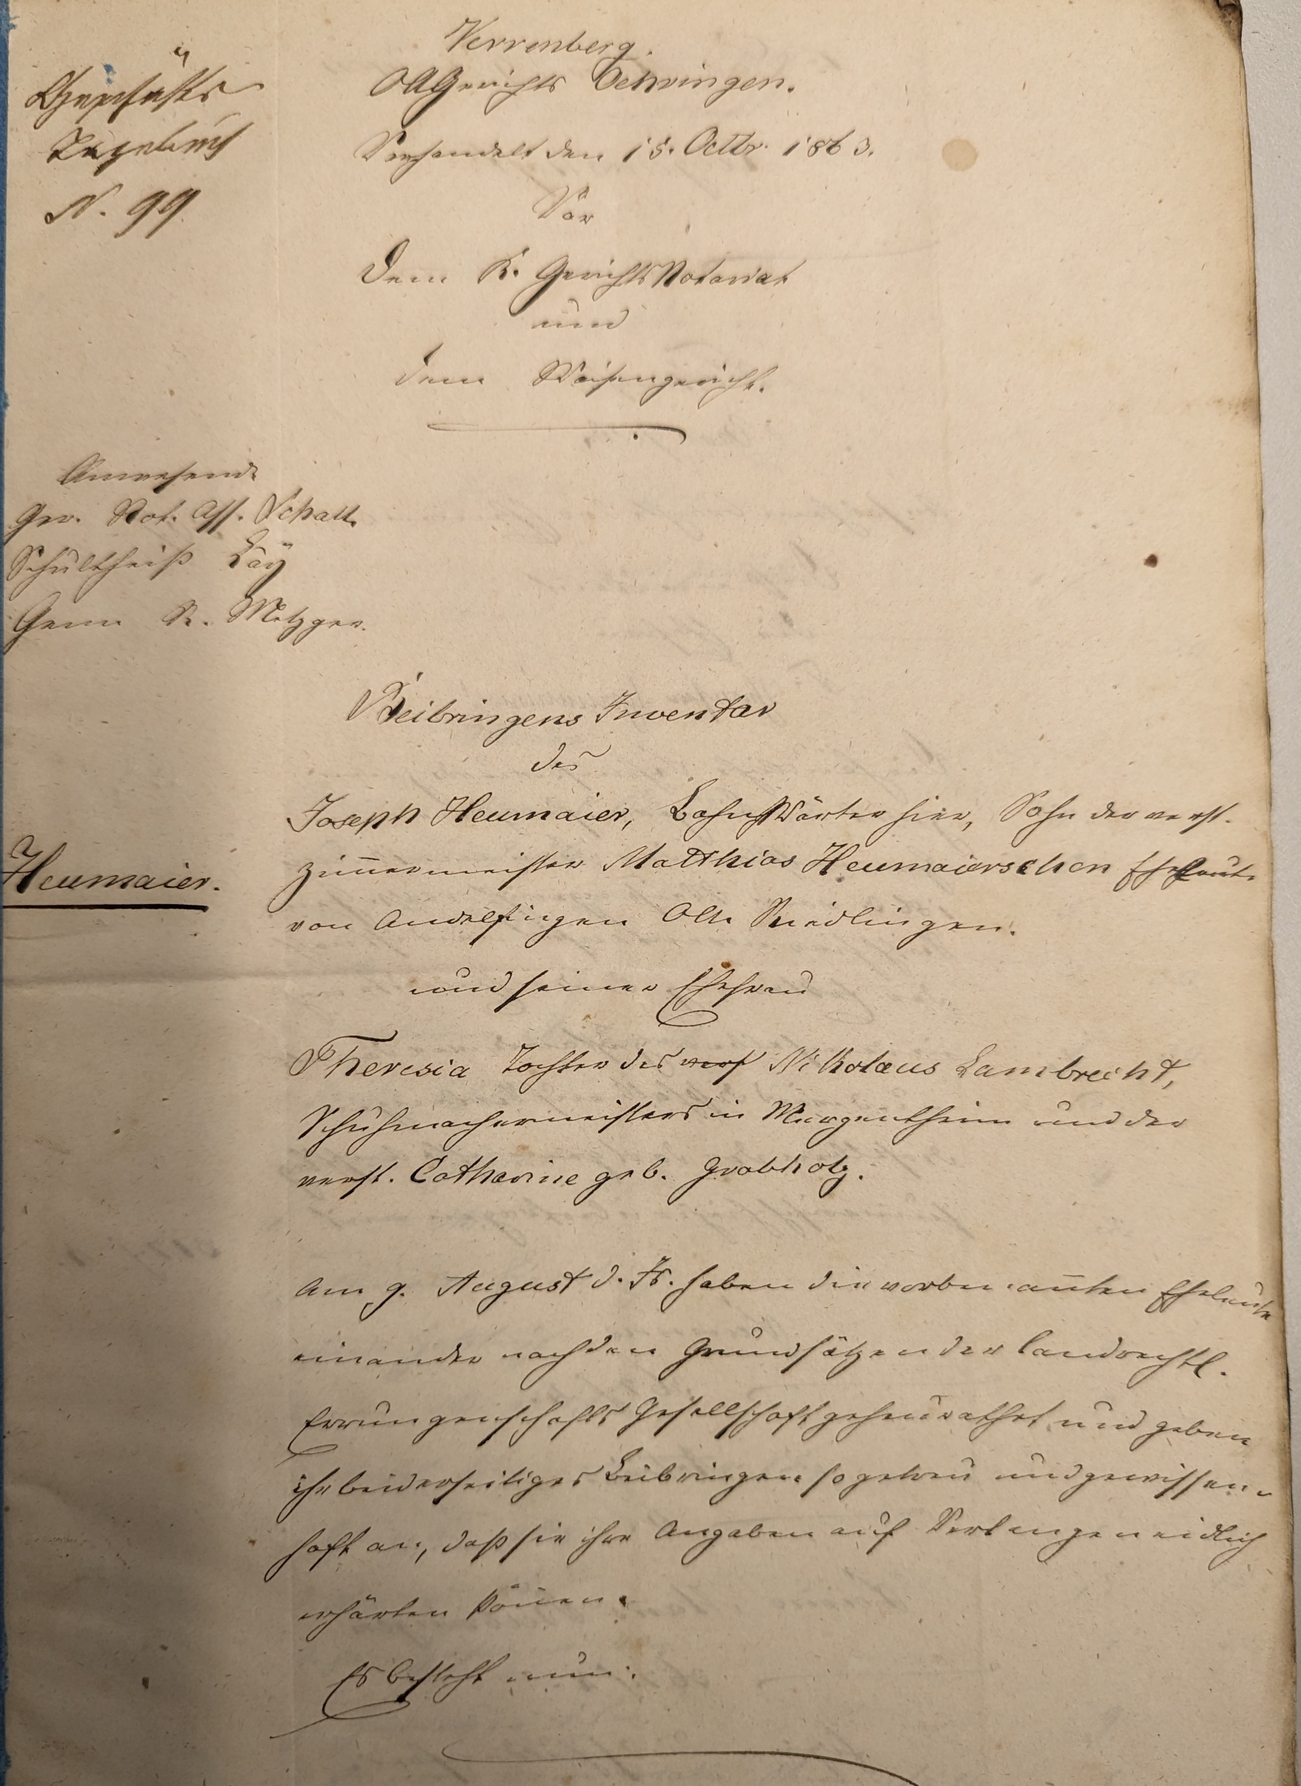 Verrenberg.
OAGerichts Oehringen.
Geschäfts
Tagebuch
N. 99.
Verhandelt den 15. Octbr. 1863.
Vor
dem K. Gerichts Notariat
und
dem Waisengericht.
Anwesend
Ger. Not. Ass. Schall.
Schultheiß Lay
Gem. R. Metzger.
Beibringens Inventar
des
Joseph Heumaier, Bahnwärter hier, Sohn der verst.
Heumaier.
Zim̅ermeister Matthias Heumaierschen Eheleute
von Andelfingen OA. Riedlingen.
und seiner Ehefrau
Theresia Tochter des verst Nikolaus Lambrecht,
Schuhmachermeisters in Mergentheim und der
verst. Catharine geb. Grabholz.
Am 9. August d. Js. haben die vorbenan̅ten Eheleute
einander nach den Grundsätzen der landrechtl.
Errungenschafts Gesellschaft geheurathet und geben
ihr beiderseitiges Beibringen so getreu und gewissen-
haft an, daß sie ihre Angaben auf Verlangen eidlich
erhärten kön̅en.
Es besteht nun: